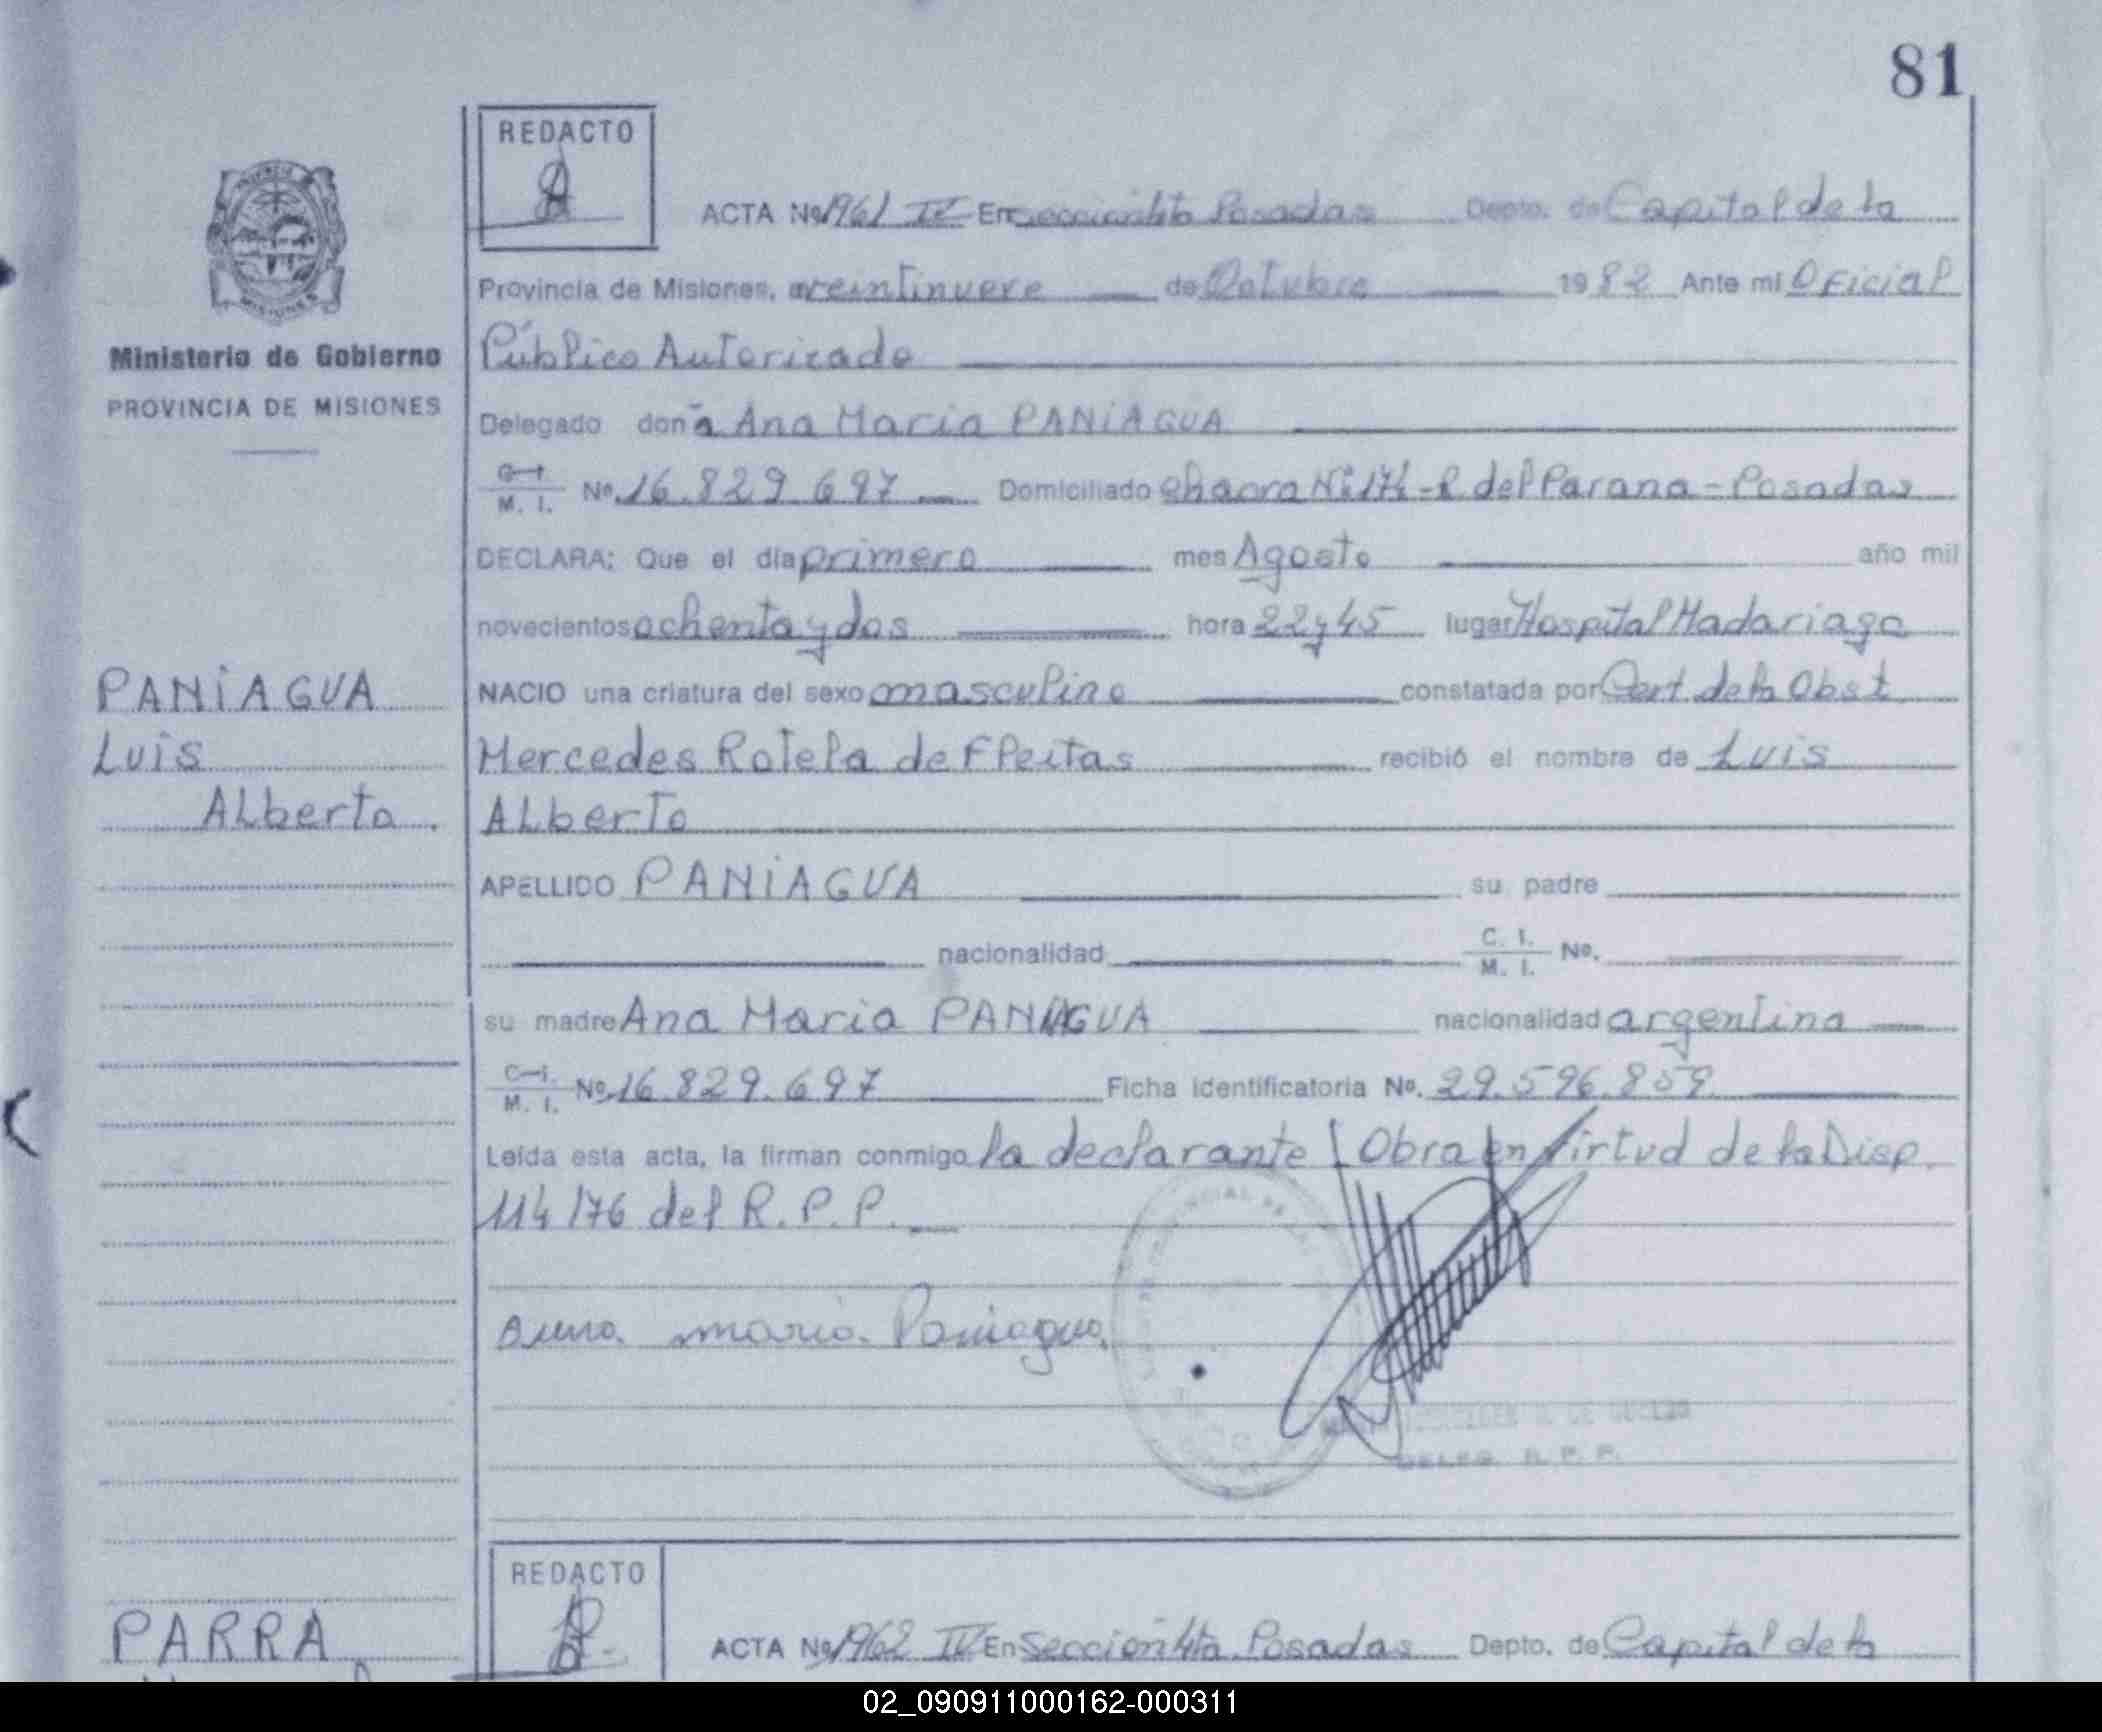 81
REDACTO
ACTA Nº 1961 IV En sección 4ta Posadas Depto. de Capital de la
Provincia de Misiones, a veintinueve de Octubre 1982 Ante mi Oficial
Público Autorizado
Delegado doña Ana Maria PANIAGUA
C. I. M. I. Nº. 16.829.697 Domiciliado Chacra Nº 174 - R. del Parana - Posadas
DECLARA: Que el día primero mes Agosto año mil
novecientos ochenta y dos hora 22 y 45 lugar Hospital Madariaga
NACIO una criatura del sexo masculino constatada por Cert. de la Obst
Mercedes Rotela de Fleitas recibió el nombre de Luis
Alberto
APELLIDO PANIAGUA su padre
nacionalidad C. I. M. I. Nº.
su madre Ana Maria PANIAGUA nacionalidad argentina
C. I. M. I. Nº 16.829.697 Ficha identificatoria Nº. 29.596.859
Leída esta acta, la firman conmigo la declarante Obra en virtud de la Disp.
114/76 del R. P. P.
maria Paniagua
DELEG. R. P. P.
Ministerio de Gobierno
PROVINCIA DE MISIONES
PANIAGUA
Luis
Alberto.
REDACTO
ACTA Nº 1962 IV En Sección 4ta Posadas Depto. de Capital de la
PARRA
02_090911000162-000311